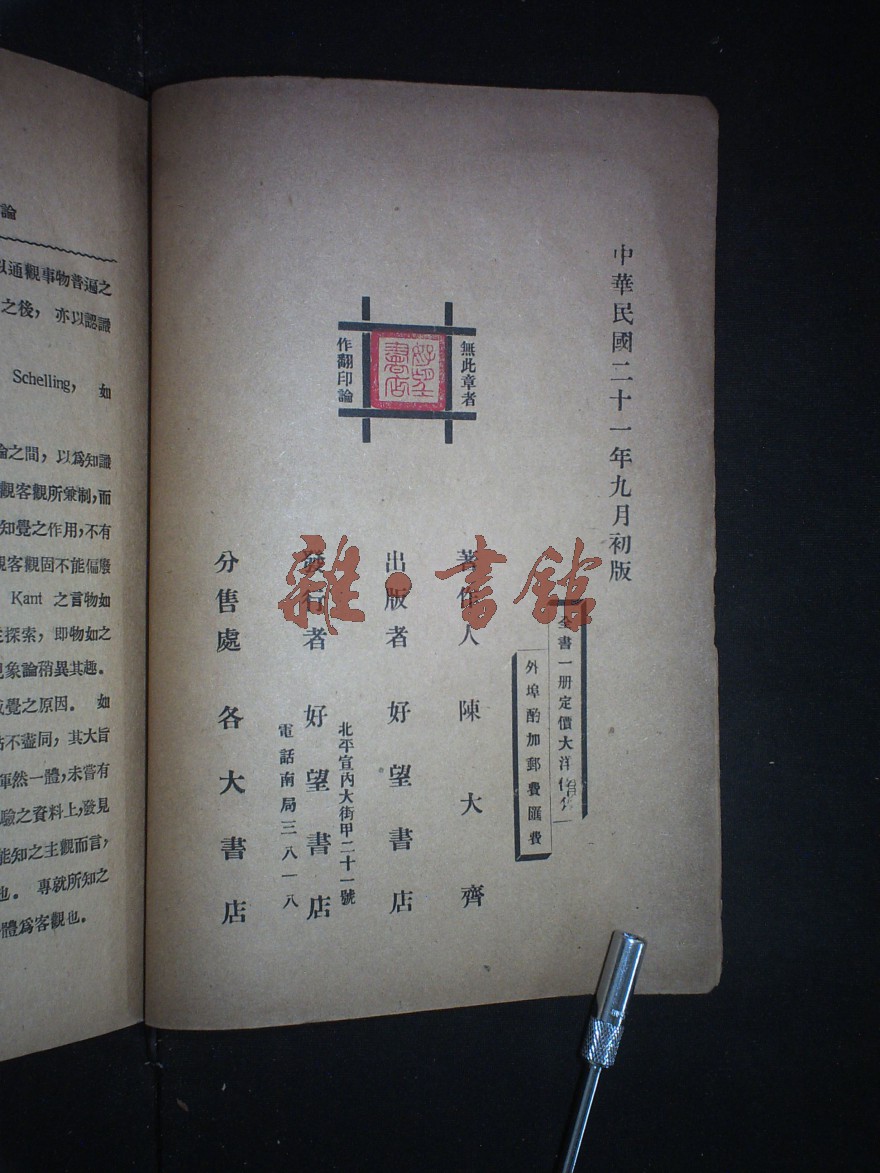 中華民國二十一年九月初版
全書一册定價大洋
外埠酌加郵費匯費
無此章者
好望書店
作翻印論
著作人 陳大齊
出版者 好望書店
發行者 好望書店
北平宣內大街甲二十一號
電話南局三八一八
分售處 各大書店
雜·書館
論
以通觀事物普遍之
之後，亦以認識
Schelling， 如
論之間，以爲知識
觀客觀所兼制，而
知覺之作用，不有
觀客觀固不能偏廢
Kant 之言物如
探索，即物如之
現象論稍異其趣。
覺之原因。 如
不盡同，其大旨
渾然一體，未嘗有
驗之資料上，發見
能知之主觀而言，
也。 專就所知之
體爲客觀也。